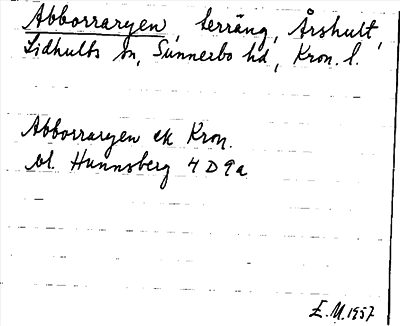 Abborraryen, terräng, Årshult,
Lidhults sn, Sunnerbo hd, Kron. l.
Abborraryen ek Kron.
bl. Hunnsberg 4 D 9 a
E. M. 1957